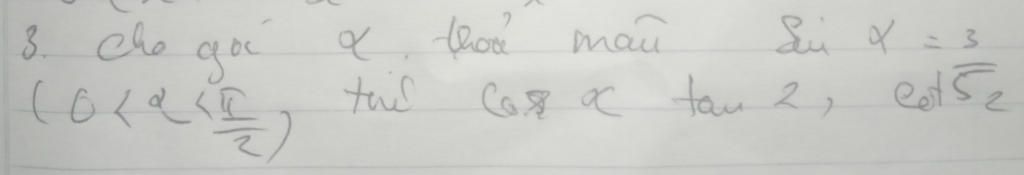 3. Cho góc α thoả mãn Sin α = 3/5
(0 < α < π/2) thì Cos α tan 2, cot 2